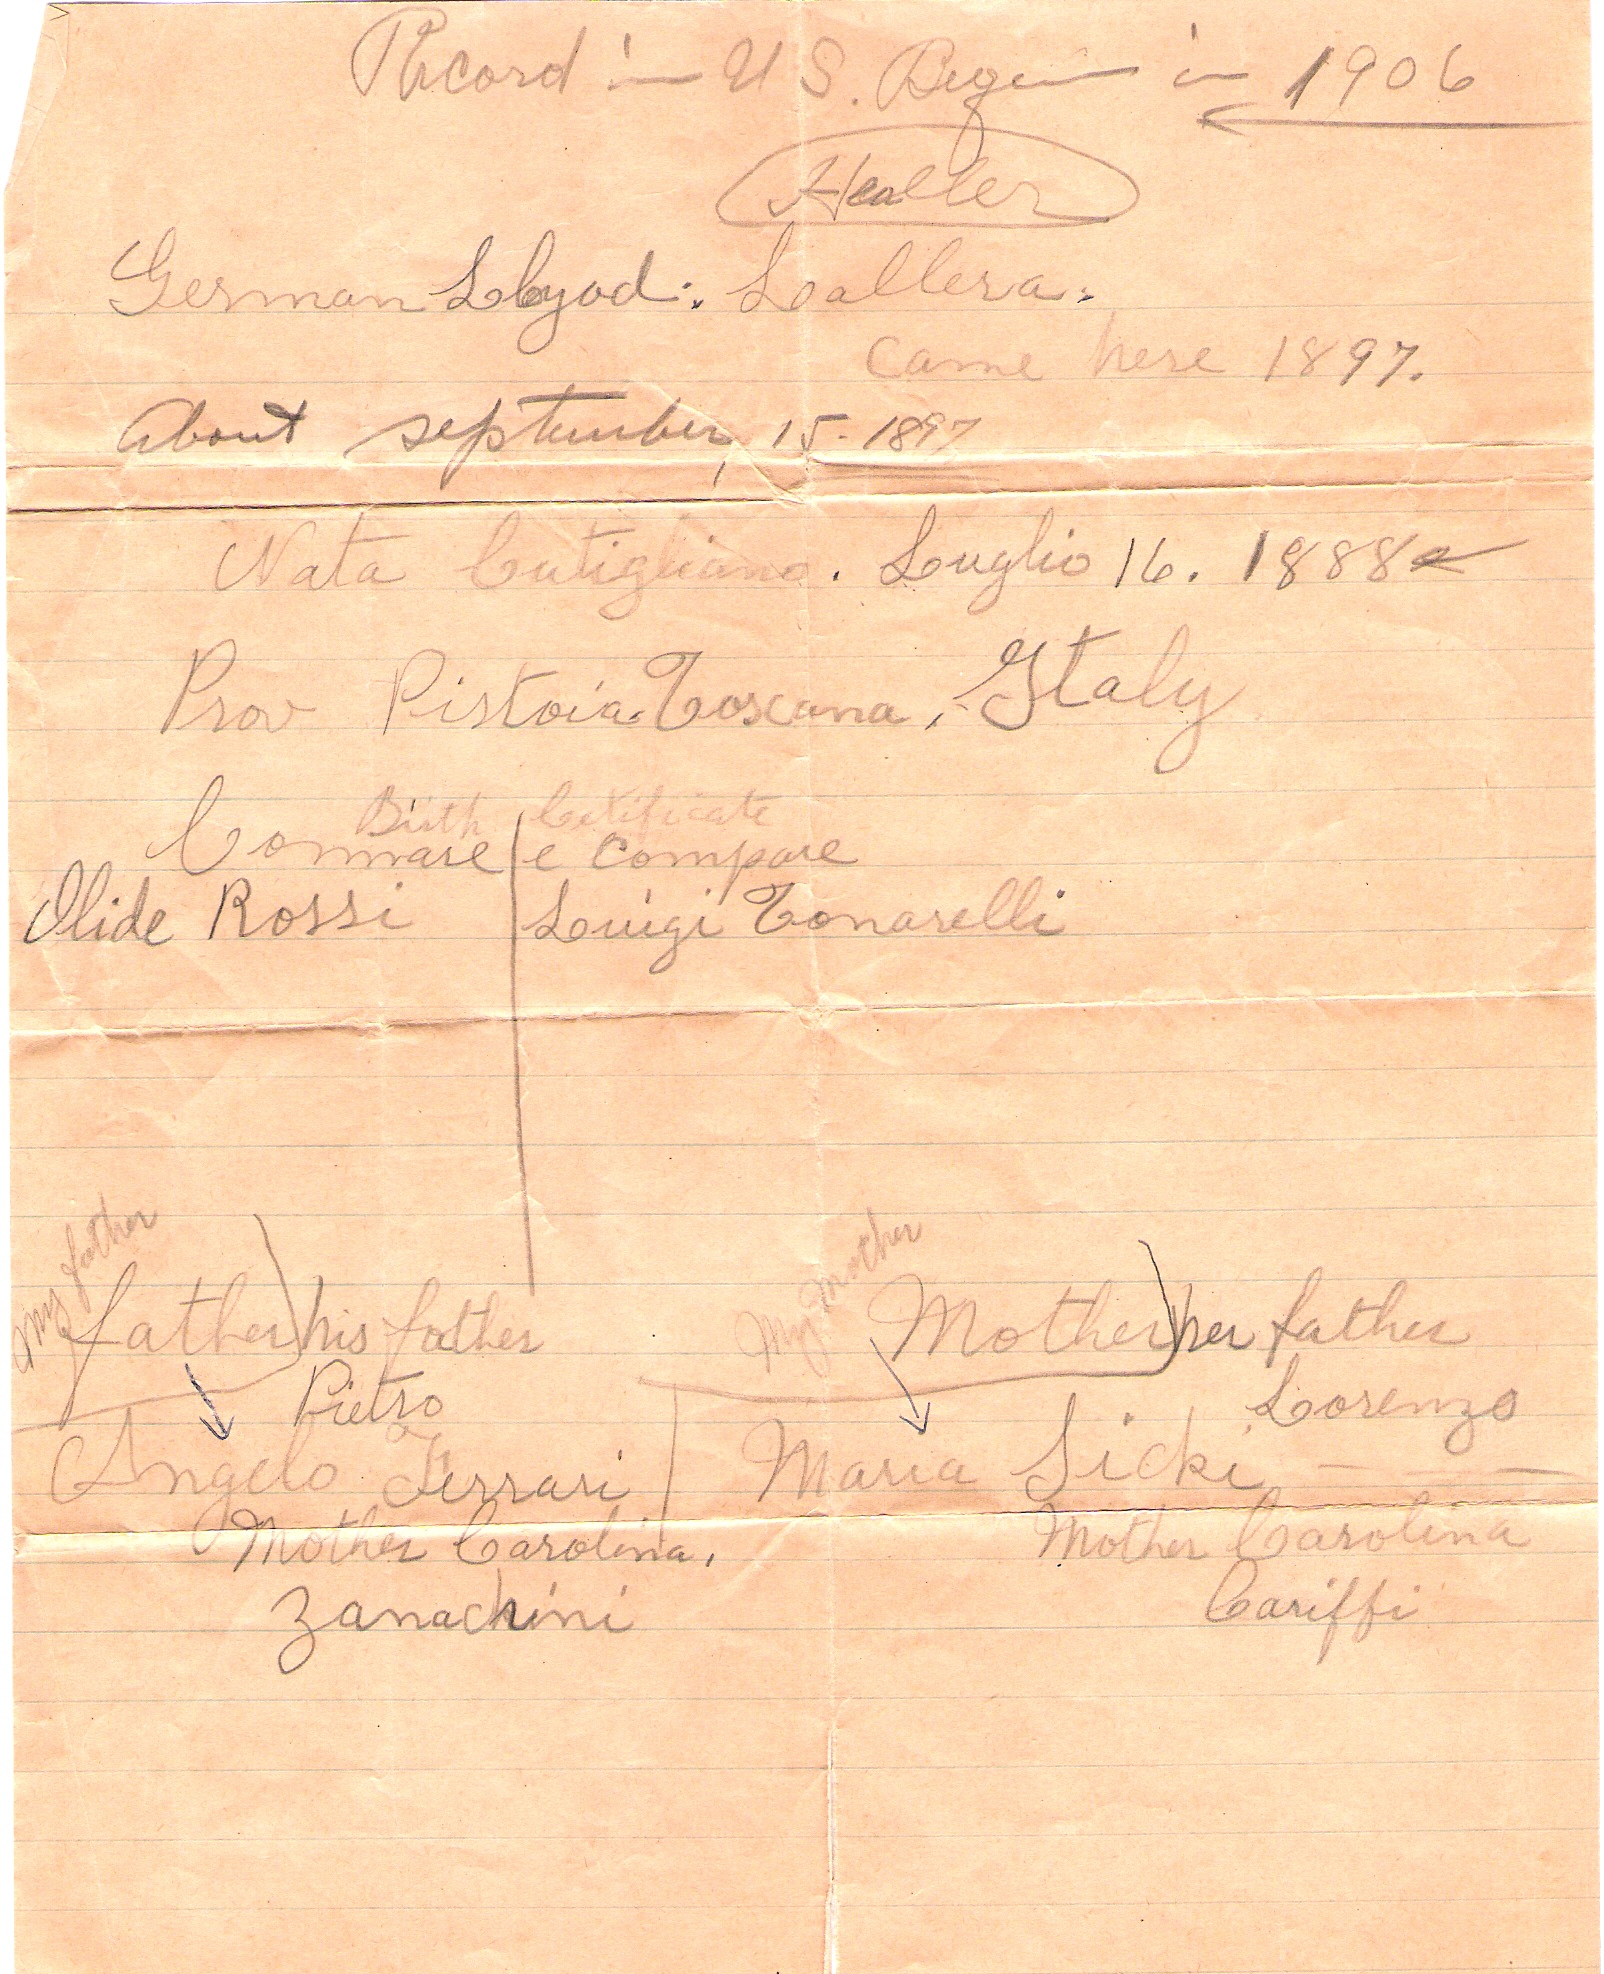 Record in U S. Begin in 1906
Healler
German Lloyod. Leallera.
Came here 1897.
About september, 15-1897
Nata Cutigliano. Luglio 16. 1888
Prov Pistoia. Toscana, Italy
Birth Cetificate
Commare e Compare
Olide Rossi Luigi Tonarelli
My father My Mother
father his father Mother her father
Pietro Lorenzo
Angelo Ferrari Maria Sicki
Mother Carolina, Mother Carolina
Zanachini Cariffi